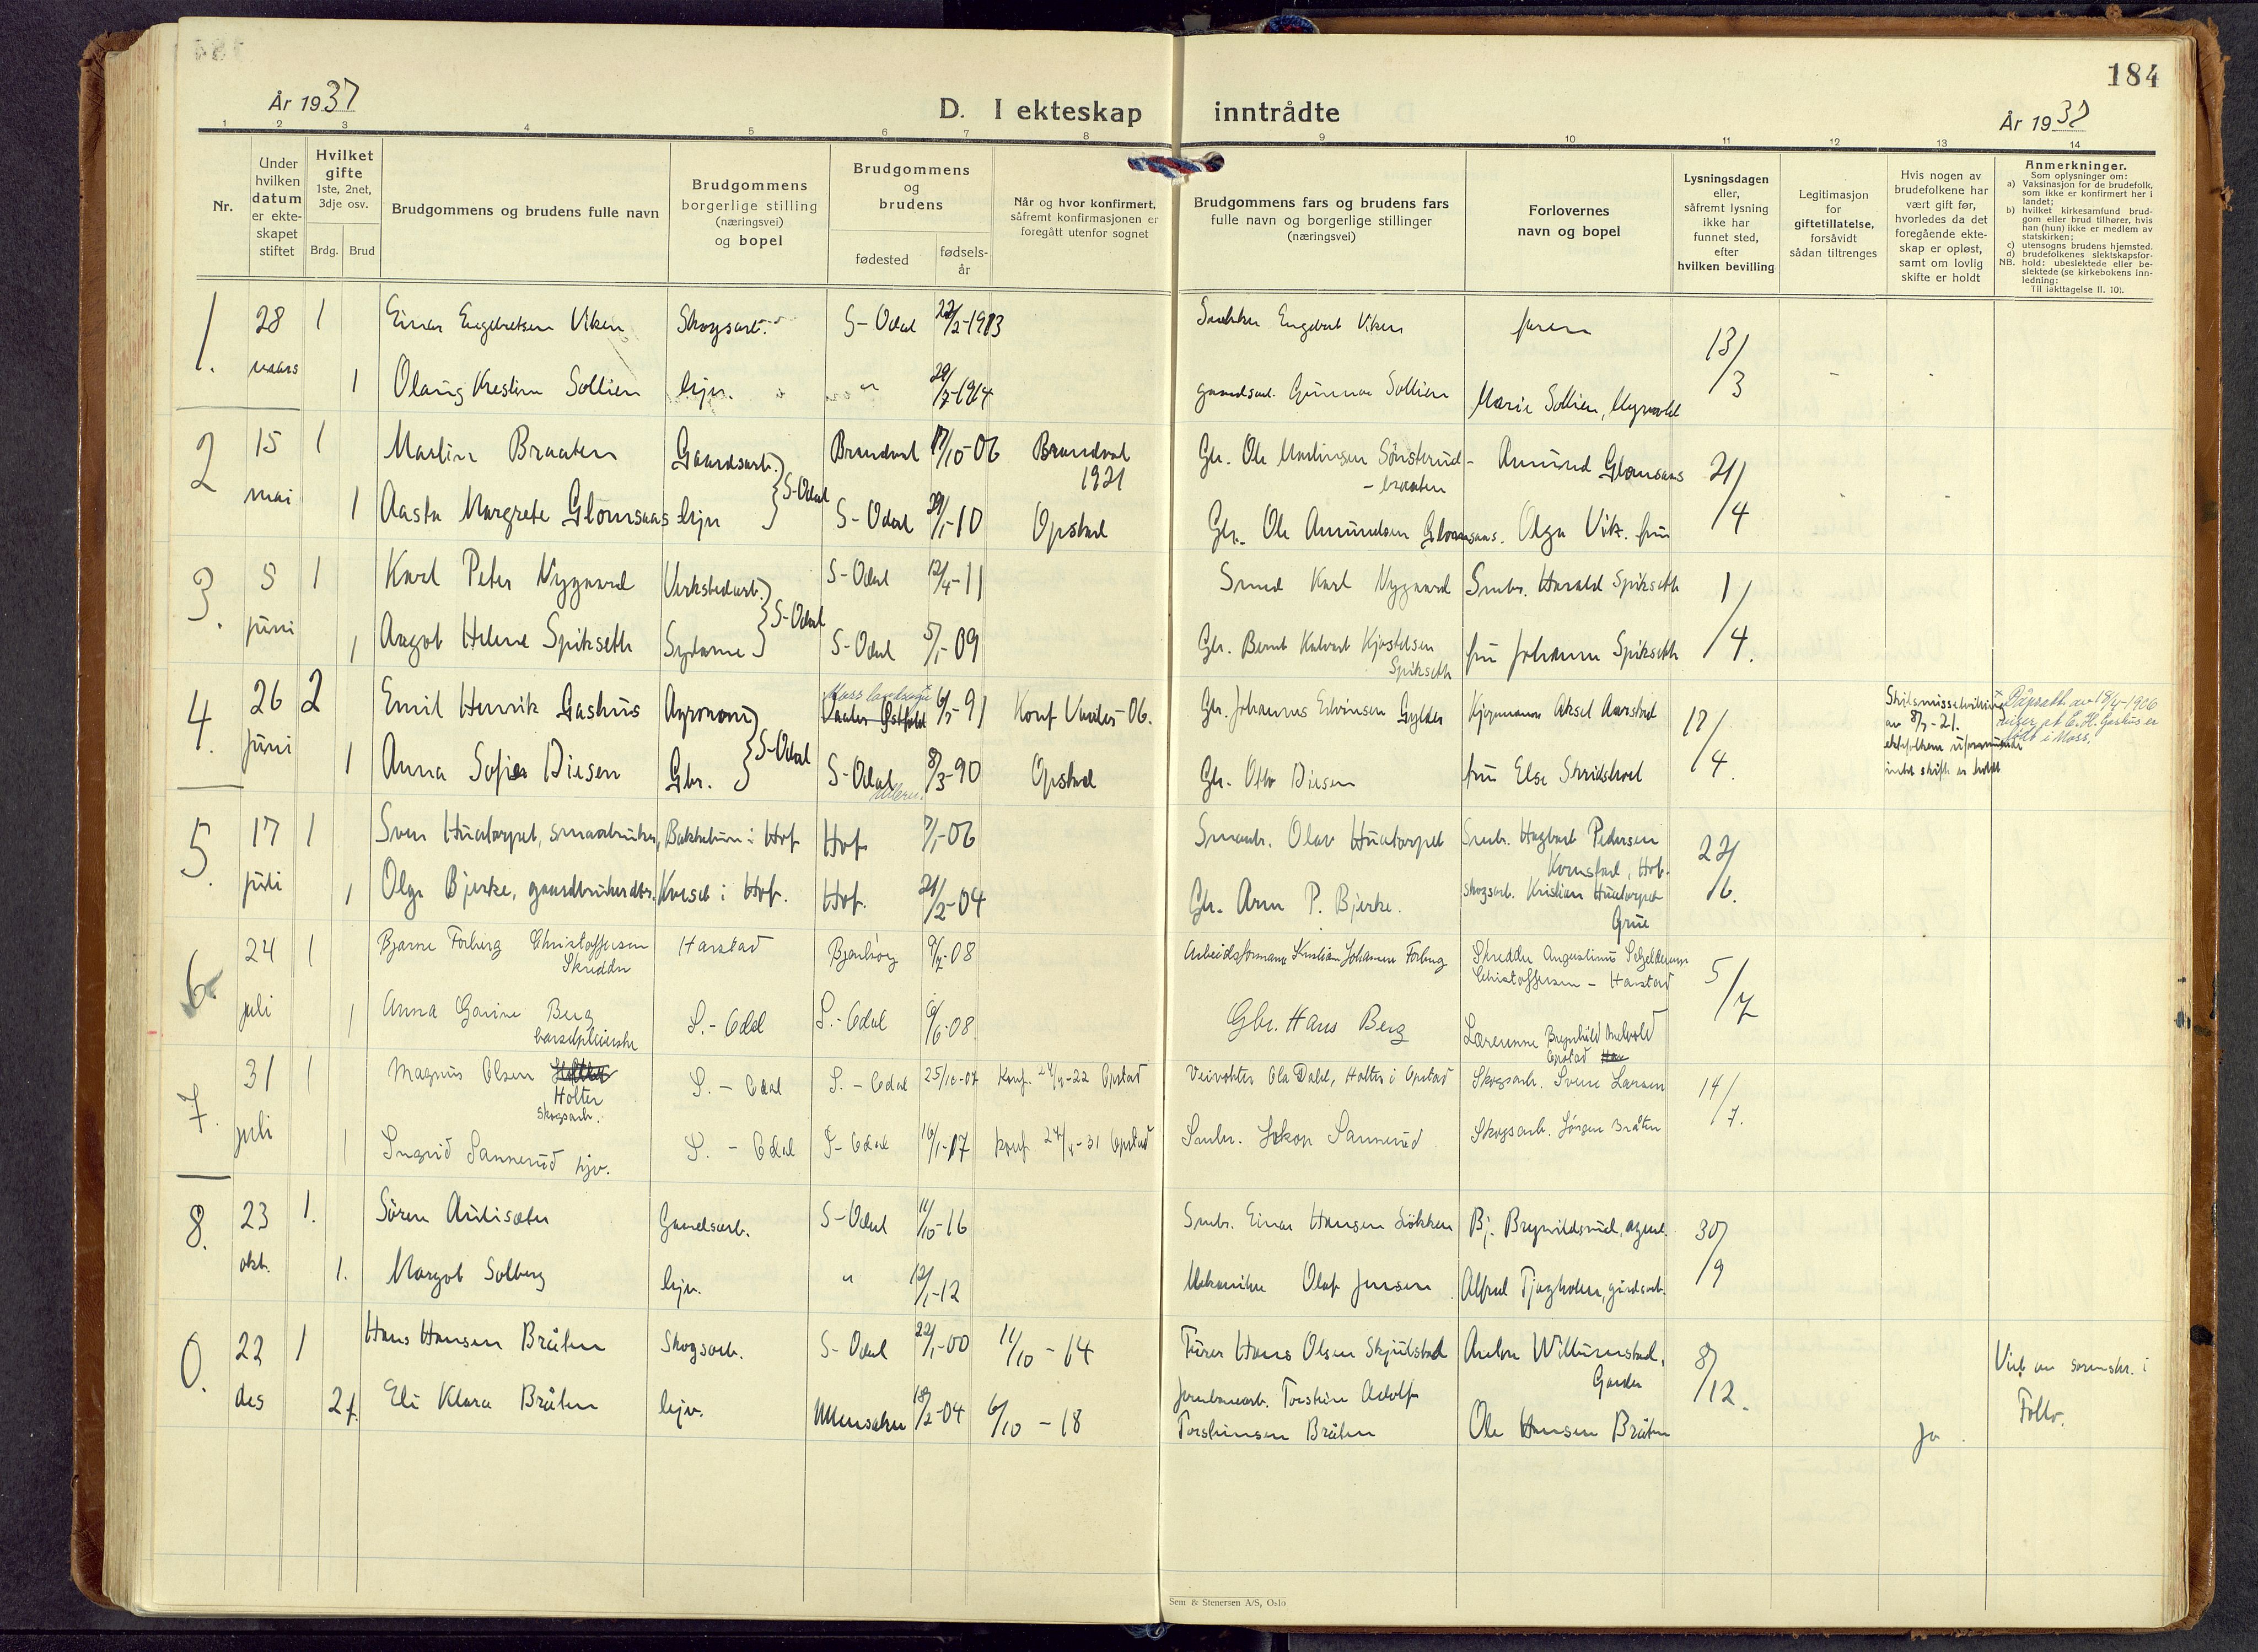 184
År 1937
D. I ekteskap inntrådte
År 1937
1 2 3 4 5 6 7 8 9 10 11 12 13 14
Nr.
Under hvilken datum er ekte- skapet stiftet
Hvilket gifte 1ste, 2net, 3dje osv.
Brdg. Brud
Brudgommens og brudens fulle navn
Brudgommens borgerlige stilling (næringsvei) og bopel
Brudgommens og brudens
fødested
fødsels- år
Når og hvor konfirmert, såfremt konfirmasjonen er foregått utenfor sognet
Brudgommens fars og brudens fars fulle navn og borgerlige stillinger (næringsvei)
Forlovernes navn og bopel
Lysningsdagen eller, såfremt lysning ikke har funnet sted, efter hvilken bevilling
Legitimasjon for giftetillatelse, forsåvidt sådan tiltrenges
Hvis nogen av brudefolkene har vært gift før, hvorledes da det foregående ekte- skap er opløst, samt om lovlig skifte er holdt
Anmerkninger.
Som oplysninger om:
a) Vaksinasjon for de brudefolk, som ikke er konfirmert her i landet;
b) hvilket kirkesamfund brud- gom eller brud tilhører, hvis han (hun) ikke er medlem av statskirken;
c) utensogns brudens hjemsted.
d) brudefolkenes slektskapsfor- hold: ubeslektede eller be- slektede (se kirkebokens inn- ledning:
NB.
Til iakttagelse II. 10).
1. 28 1 Einar Engebretsen Viken Skogsarb. S-Odal 22/2-1913 Snekker Engebret Viken faren 13/3
mars 1 Olaug Kristine Sollien hjv. " 29/7-1914 gaardsarb. Gunnar Sollien Marie Sollien, Myrvold
2 15 1 Martin Braaten Gaardsarb. S-Odal Brandval 17/10-06 Brandval 1921 Gbr. Ole Martinsen Sønsterud- -braaten Amund Glomsaas 21/4
mai 1 Aasta Margrete Glomsaas hjv S-Odal 29/1-10 Opstad Gbr. Ole Amundsen Glomsaas. Olga Vik. fru
3. 5 1 Karl Peter Nygaard Verkstedarb. S-Odal S-Odal 12/4-11 Smed Karl Nygaard Smbr. Harald Spikseth 1/4.
juni 1 Aagot Helene Spikseth Sydame S-Odal 5/1-09 Gbr. Bernt Kalvart Kjøstelsen Spikseth fru Johanne Spikseth
4. 26 2 Emil Henrik Gashus Agronom S-Odal Moss landsogn Vaaler Østfold 6/5-91 Konf Vaaler-06. Gbr. Johannes Edvinsen Gylder Kjøpmann Aksel Aarstad 17/4.
Skilsmissebevilling av 8/7-21.
Dåpsatt. av 19/4-1906 viser at E. H. Gashus er født i Moss.
juni 1 Anna Sofie Disen Gbr. S-Odal Ullern. 8/3-90 Opstad Gbr. Otto Disen fru Else Skridshol
5. 17 1 Sven Huatorpet, smaabruker, Bakketun i Hof Hof 7/1-06 Smaabr. Olav Huatorpet Smbr. Hagbart Pedersen Kornstad, Hof. 22/6.
juli 1 Olga Bjerke, gaardbrukerdtr. Kvesct i Hof. Hof. 21/2-04 Gbr. Arne P. Bjerke. skogsarb. Kristian Huatorpet Grue
6. 24 1 Bjarne Forberg Christoffersen Skredder Harstad Bjarkøy 9/7-08 Arbeidsformann Kristian Johansen Forberg Skredder Augustinus Christoffersen - Harstad 5/7
juli 1 Anna Gavine Berg barselpleierske S.-Odal S.-Odal 6/6-08 Gbr. Hans Berg Lærerinne Brynhild Melvold Opstad
7. 31 1 Magnus Olsen Holter skogsarb. S.-Odal S.-Odal 25/10-07 Konf. 24/9-22 Opstad Veivokter Ola Dahl, Holter i Opstad Skogsarb. Svene Larsen 14/7.
juli 1 Ingrid Sannerud hjv. S.-Odal S-Odal 16/1-17 konf 24/4-31 Opstad Smbr. Jakop Sannerud Skogsarb. Jørgen Bråten
8. 23 1. Sören Aulisæter Gaardsarb. S-Odal 11/10-16 Smbr. Einar Hansen Løkken Bj. Brynildsrud, agent. 30/9
okt. 1. Margot Solberg hjv. " 12/1-12 Mekaniker Olaf Jensen Alfred Tjugholen, gårdsarb.
22 1 Hans Hansen Bråten Skogsarb. S-Odal 22/1-00 11/10-14 Fører Hans Olsen Skjulstad Anton Willumstad, Garder 8/12. Viet av sorenskr. i Follo.
des 2 f. Eli Klara Bråten hjv. Ullensaker 18/2-04 6/10-18 Jernbanearb. Torstein Adolf Torsteinsen Bråten Ole Hansen Bråten Ja
Sem & Stenersen A/S, Oslo